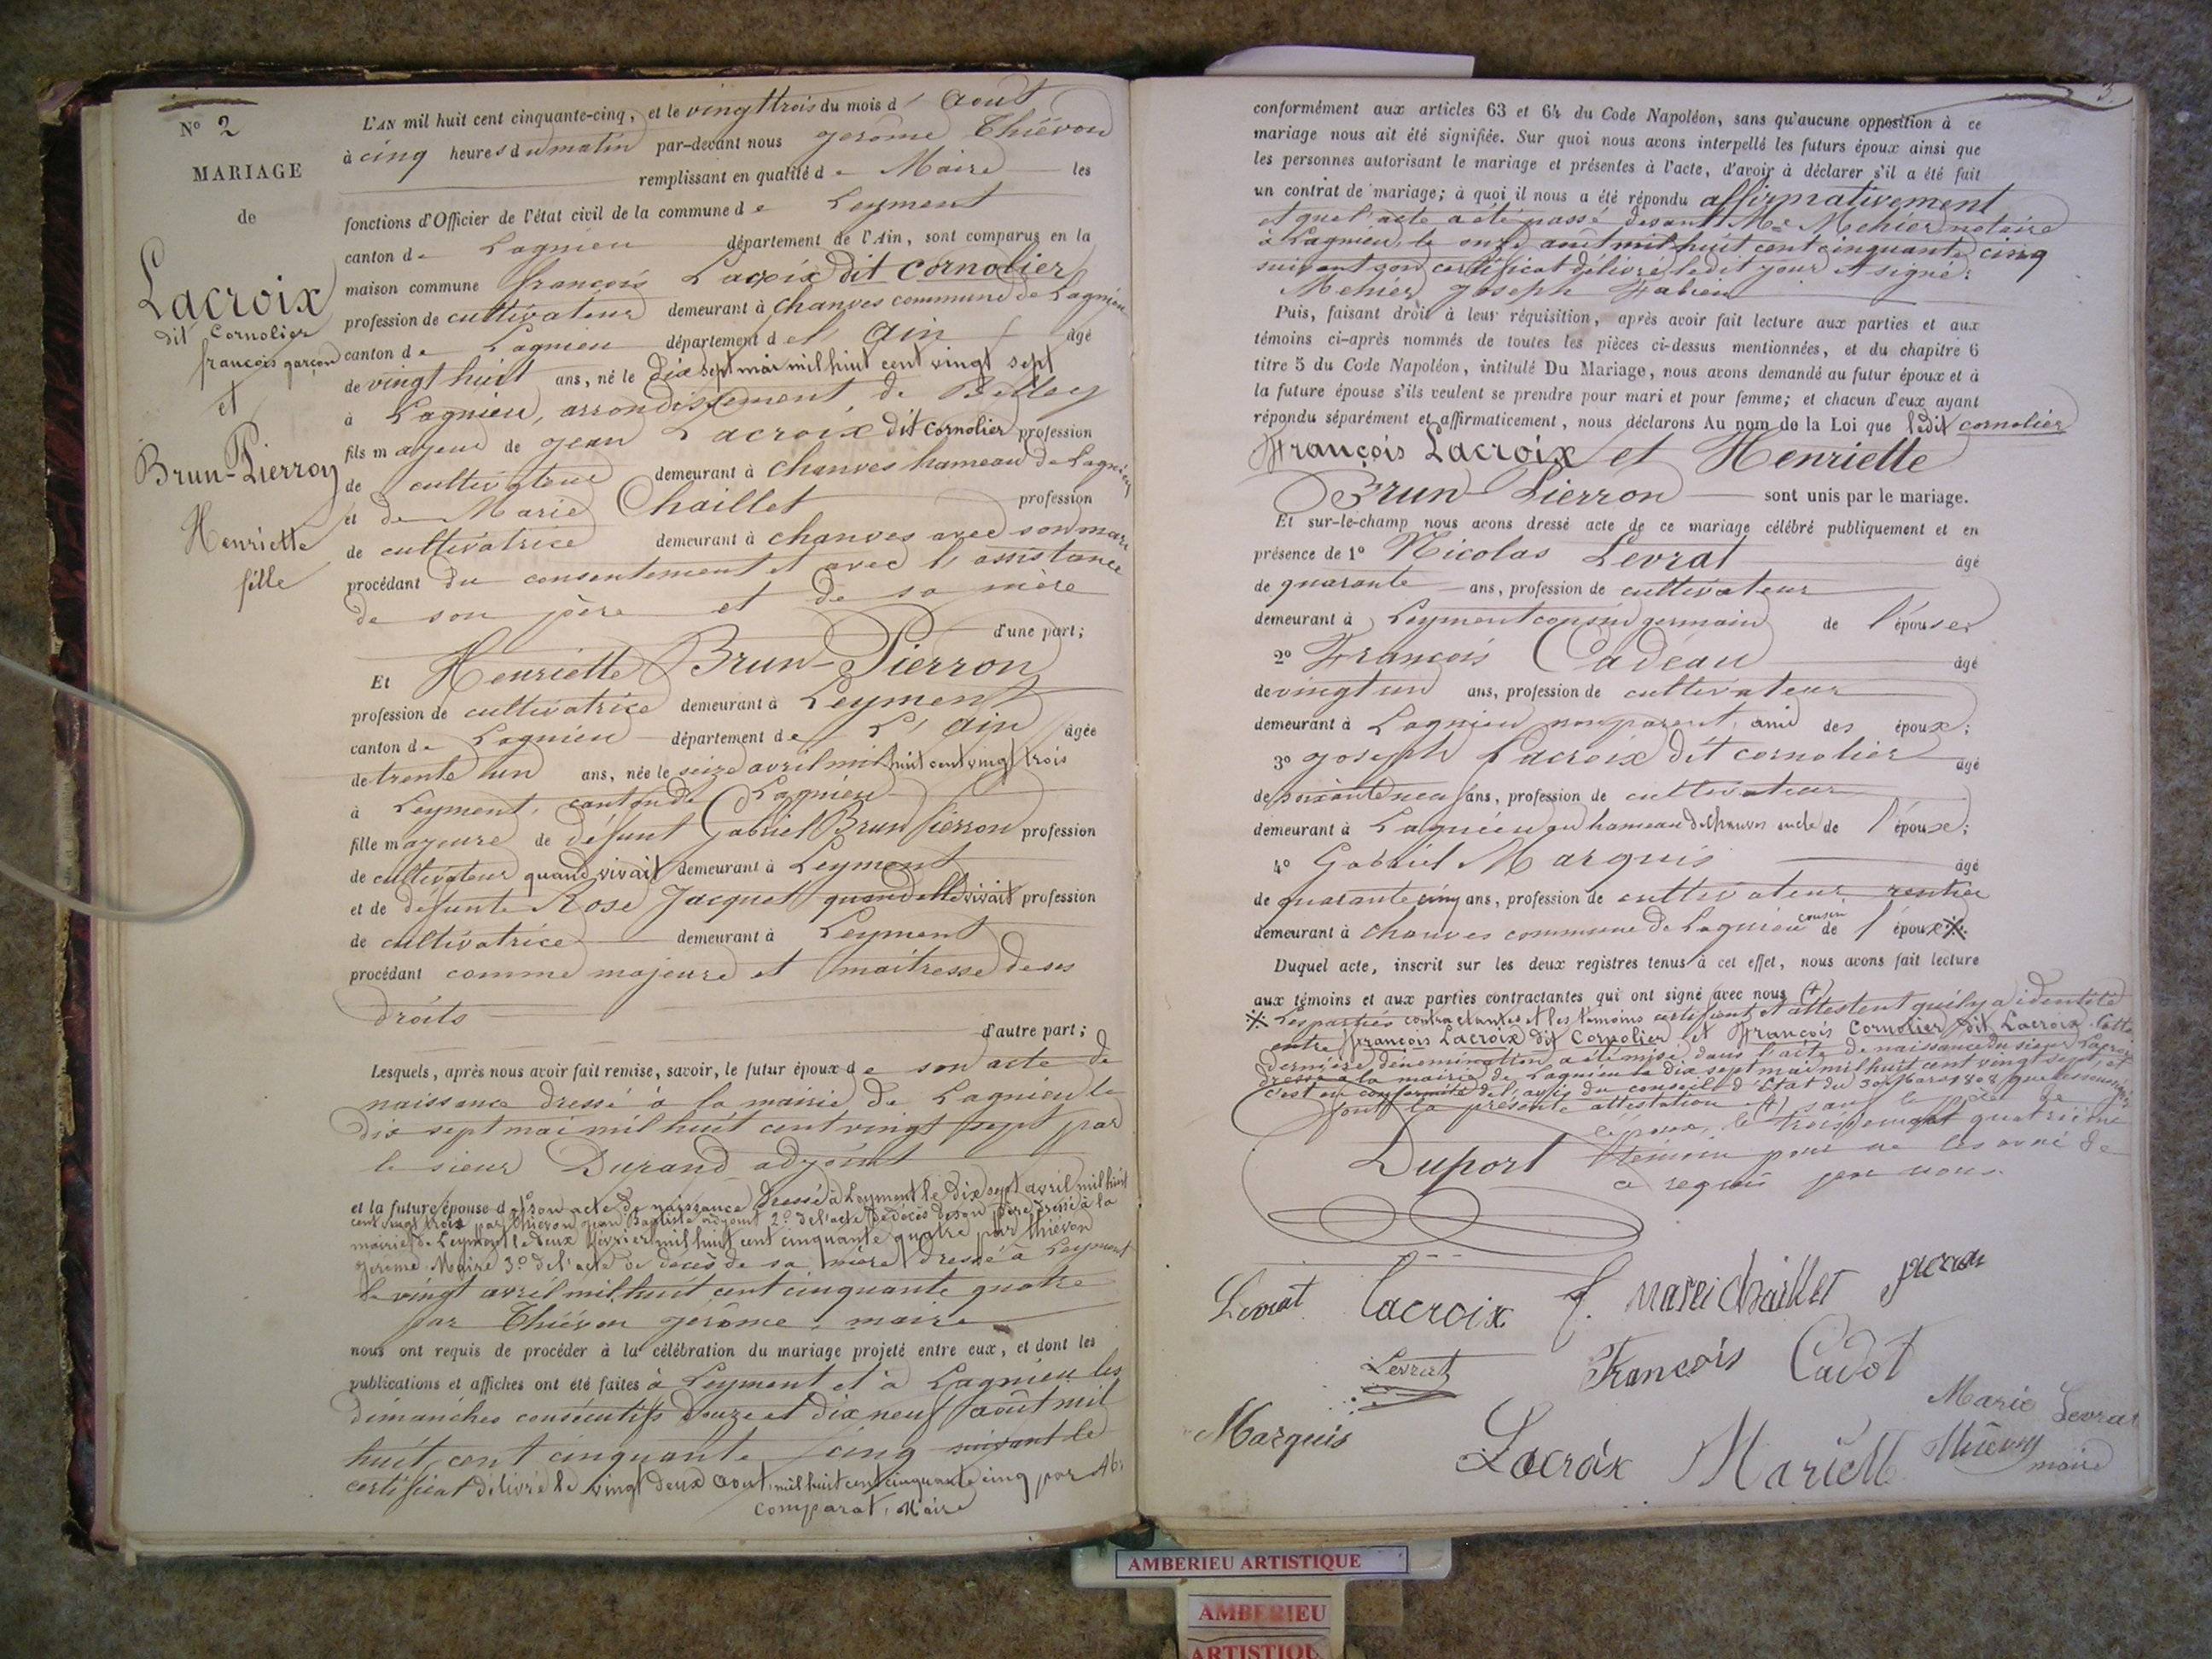 No 2
MARIAGE
de
Lacroix
dit Cornolier
françois garçon
et
Brun-Pierron
Henriette
fille
L'AN mil huit cent cinquante-cinq, et le vingt trois du mois d' Aout
à cinq heures du matin par-devant nous Jerôme Thiévon
remplissant en qualité de Maire les
fonctions d'Officier de l'état civil de la commune de Leyment
canton de Lagnieu département de l'Ain, sont comparus en la
maison commune françois Lacroix dit Cornolier
profession de cultivateur demeurant à Chanves commune de Lagnieu
canton de Lagnieu département de l' Ain âgé
de vingt huit ans, né le dix sept mai mil huit cent vingt sept
à Lagnieu, arrondissement de Belley
fils majeur de Jean Lacroix dit Cornolier profession
de cultivateur demeurant à Chanves hameau de Lagnieu
et de Marie Chaillet profession
de cultivatrice demeurant à Chanves avec son mari
procédant du consentement et avec l'assistance
de son père et de sa mère
d'une part;
Et Henriette Brun-Pierron
profession de cultivatrice demeurant à Leyment
canton de Lagnieu département de L' Ain âgée
de trente un ans, née le seize avril mil huit cent vingt trois
à Leyment, canton de Lagnieu
fille majeure de défunt Gabriel Brun Pierron profession
de cultivateur quand vivait demeurant à Leyment
et de défunte Rose Jacquet quand elle vivait profession
de cultivatrice demeurant à Leyment
procédant comme majeure et maitresse de ses
droits
d'autre part;
Lesquels, après nous avoir fait remise, savoir, le futur époux de son acte de
naissance dressé à la mairie de Lagnieu le
dix sept mai mil huit cent vingt sept par
le sieur Durand adjoint
et la future épouse d 1o son acte de naissance dressé à Leyment le dix sept avril mil huit
cent vingt trois par Thiévon Jean Baptiste adjoint 2o de l'acte de décès de son père dressé à la
mairie de Leyment le deux février mil huit cent cinquante quatre par Thiévon
Jerome Maire 3o de l'acte de décès de sa mère dressé à Leyment
le vingt avril mil huit cent cinquante quatre
par Thiévon Jerôme, maire
nous ont requis de procéder à la célébration du mariage projeté entre eux, et dont les
publications et affiches ont été faites à Leyment et à Lagnieu les
dimanches consécutifs douze et dix neuf août mil
huit cent cinquante cinq suivant le
certificat délivré le vingt deux aout mil huit cent cinquante cinq par Mr
comparat, Maire
3.
conformément aux articles 63 et 64 du Code Napoléon, sans qu'aucune opposition à ce
mariage nous ait été signifiée. Sur quoi nous avons interpellé les futurs époux ainsi que
les personnes autorisant le mariage et présentes à l'acte, d'avoir à déclarer s'il a été fait
un contrat de mariage; à quoi il nous a été répondu affirmativement
et que l'acte a été passé devant Me Mehier notaire
à Lagnieu, le onze août mil huit cent cinquante cinq
suivant son certificat délivré ledit jour et signé:
Mehier Joseph Fabien
Puis, faisant droit à leur réquisition, après avoir fait lecture aux parties et aux
témoins ci-après nommés de toutes les pièces ci-dessus mentionnées, et du chapitre 6
titre 5 du Code Napoléon, intitulé Du Mariage, nous avons demandé au futur époux et à
la future épouse s'ils veulent se prendre pour mari et pour femme; et chacun d'eux ayant
répondu séparément et affirmativement, nous déclarons Au nom de la Loi que ledit cornolier
François Lacroix et Henriette
Brun-Pierron sont unis par le mariage.
Et sur-le-champ nous avons dressé acte de ce mariage célébré publiquement et en
présence de 1o Nicolas Levrat âgé
de quarante ans, profession de cultivateur
demeurant à Leyment cousin germain de l'épouse;
2o François Cadeau âgé
de vingt un ans, profession de cultivateur
demeurant à Lagnieu non parent, ami des époux;
3o Joseph Lacroix dit cornolier âgé
de soixante neuf ans, profession de cultivateur
demeurant à Lagnieu au hameau de Chanves oncle de l'époux;
4o Gabriel Marquis âgé
de quarante cinq ans, profession de cultivateur rentier
demeurant à Chanves commune de Lagnieu cousin de l'époux ※.
Duquel acte, inscrit sur les deux registres tenus à cet effet, nous avons fait lecture
aux témoins et aux parties contractantes qui ont signé avec nous (+)
※ Les parties contractantes et les témoins certifient et attestent qu'il y a identité
entre françois Lacroix dit Cornolier et François Cornolier dit Lacroix. Cette
dernière dénomination a été mise dans l'acte de naissance du sieur Lacroix
dressé à la mairie de Lagnieu le dix sept mai mil huit cent vingt sept, et
c'est en conformité de l'avis du conseil d'Etat du 30 Mars 1808 que les soussignés
font la présente attestation (+) sauf le père de
le troisième et quatrième
témoin pour ne
de ce requis par nous.
Duport
Levrat Lacroix f. marei chaillet pieron
Levrat François Cadot
Marquis Lacroix Mariett Marie Levrat
Thiévon
maire
AMBERIEU ARTISTIQUE
AMBERIEU
ARTISTIQU